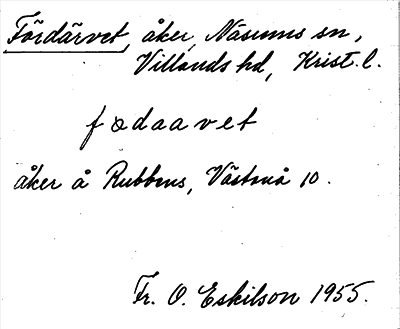 Fördärvet, åker, Näsums sn,
Villands hd, Krist. l.
fødaavet
åker å Rubbens, Västanå 10.
Fr. O. Eskilson 1955.